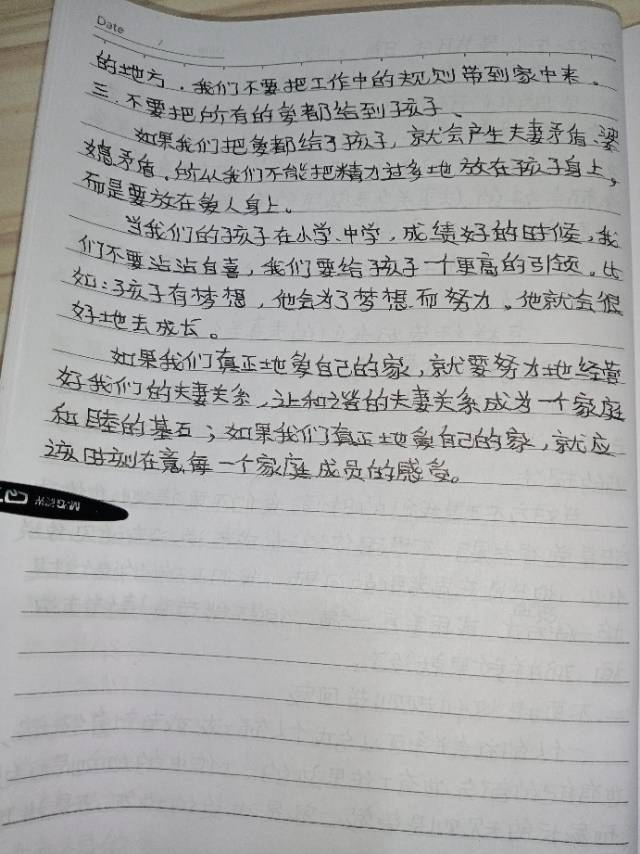 Date
的地方，我们不要把工作中的规则带到家中来。
三、不要把所有的爱都给到孩子、
如果我们把爱都给了孩子，就会产生夫妻矛盾、婆
媳矛盾。所以我们不能把精力过多地放在孩子身上，
而是要放在爱人身上。
当我们的孩子在小学、中学，成绩好的时候，我
们不要沾沾自喜，我们要给孩子一个更高的引领。比
如：孩子有梦想，他会为了梦想而努力。他就会很
好地去成长。
如果我们真正地爱自己的家，就要努力地经营
好我们的夫妻关系，让和谐的夫妻关系成为一个家庭
和睦的基石；如果我们真正地爱自己的家，就应
该时刻在意每一个家庭成员的感受。
M&G